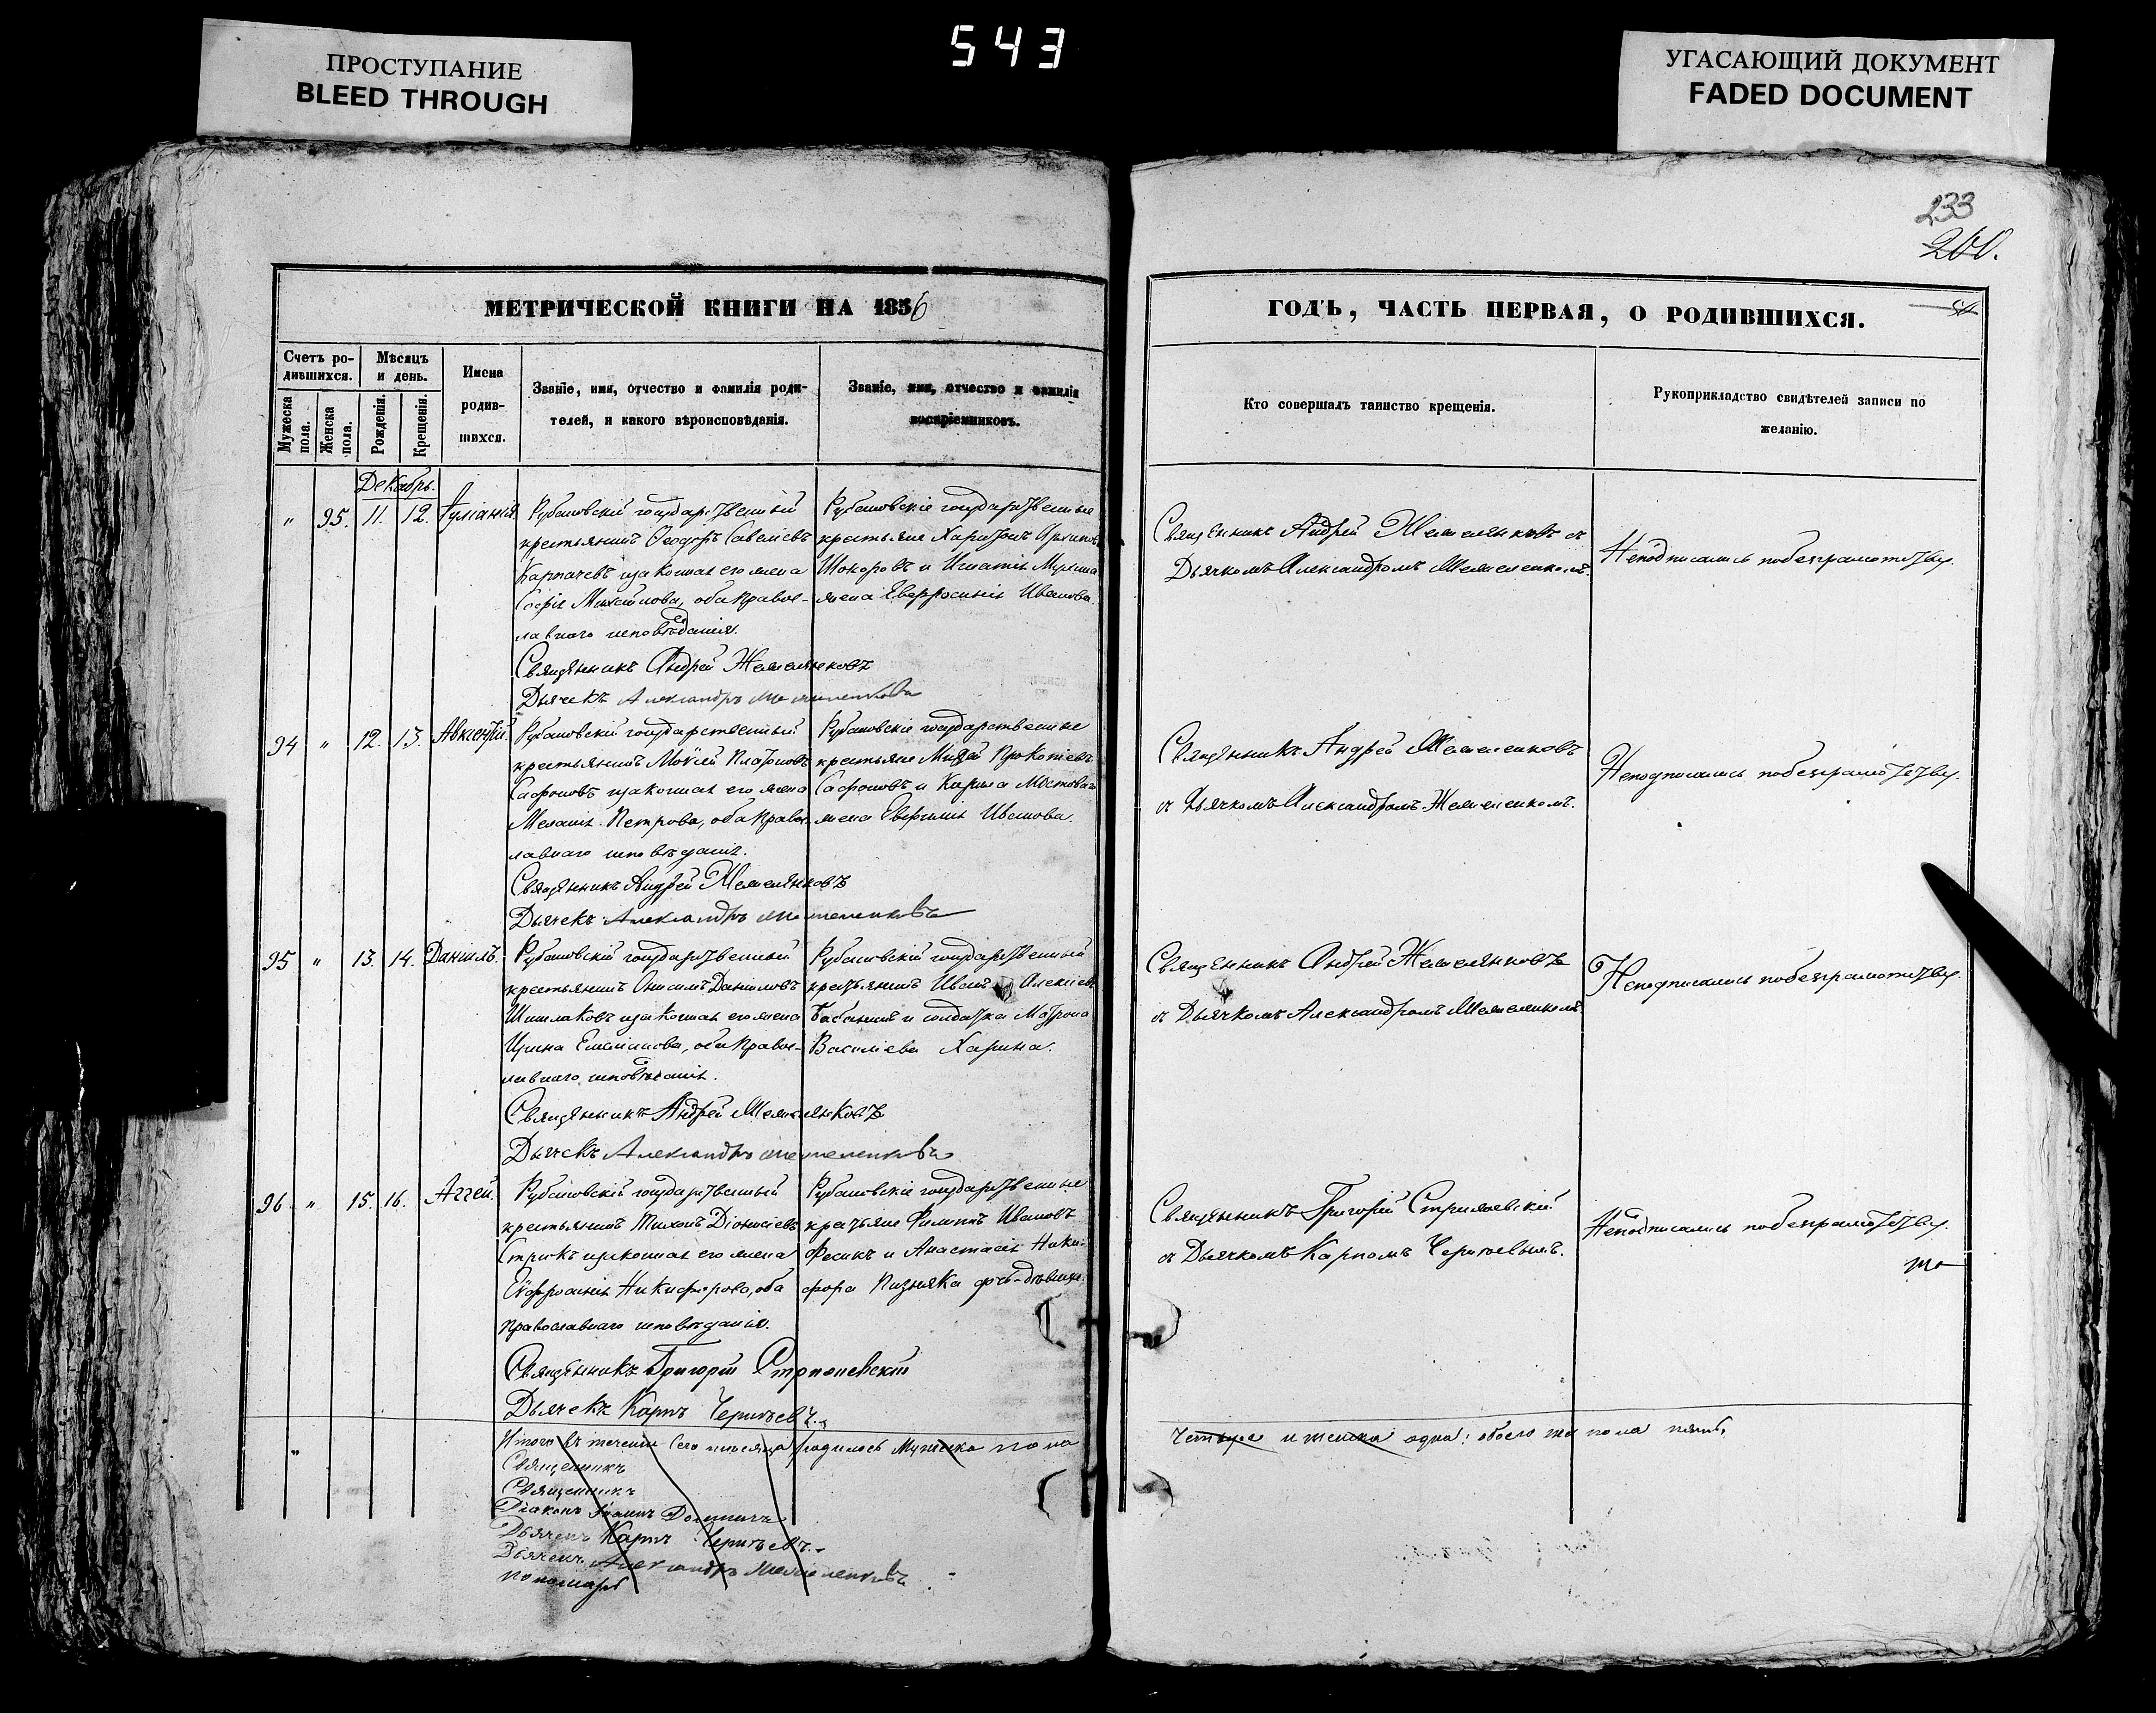 543
ПРОСТУПАНИЕ
BLEED THROUGH
УГАСАЮЩИЙ ДОКУМЕНТ
FADED DOCUMENT
233
200.
МЕТРИЧЕСКОЙ КНИГИ НА 1856
Счетъ ро-
дившихся.
Мѣсяцъ
и день.
Мужеска
пола.
Женска
пола.
Рожденія.
Крещенія.
Имена
родив-
шихся.
Званіе, имя, отчество и фамилія роди-
телей, и какого вѣроисповѣданія.
Званіе, имя, отчество и фамилія
воспріемниковъ.
Декабрь.
" 95. 11. 12. Іуліанія.
Рубановскій государственный
крестьянинъ Ѳеодоръ Савеліевъ
законная его жена
Софія Михайлова, оба правос-
лавнаго исповѣданія.
Рубановскіе государственные
крестьяне Харитонъ Архиповъ
и Игнатія
жена Евфросинія Иванова.
Священникъ Андрей Жемеленковъ
Дьячекъ Александръ Жемеленковъ
94 " 12. 13. Авксентій.
Рубановскій государственный
крестьянинъ Моѵсей Платоновъ
Сафоновъ и законная его жена
Меланія Петрова, оба правос-
лавнаго исповѣданія.
Рубановскіе государственные
крестьяне Прокопіевъ
Сафоновъ и
жена Евгенія Иванова.
Священникъ Андрей Жемеленковъ
Дьячекъ Александръ Жемеленковъ
95 " 13. 14. Даніилъ.
Рубановскій государственный
крестьянинъ Онисимъ Даніиловъ
Шишлаковъ и законная его жена
Ирина Емеліанова, оба правос-
лавнаго исповѣданія.
Рубановскій государственный
крестьянинъ Иванъ Алексіевъ
и солдатка Матрона
Василіева Харина.
Священникъ Андрей Жемеленковъ
Дьячекъ Александръ Жемеленковъ
96 " 15. 16. Аггей.
Рубановскій государственный
крестьянинъ Тихонъ Діонисіевъ
Стрикъ и законная его жена
Евфросинія Никифорова, оба
православнаго исповѣданія.
Рубановскіе государственные
крестьяне Филиппъ Ивановъ
Фесикъ и Анастасія Ники-
фора Пизняка дочь-дѣвица.
Священникъ Григорій
Дьячекъ Карпъ
" Итого въ теченіи сего мѣсяца родилось Мужеска пола
Священникъ
Священникъ
Діаконъ Іоаннъ
Дьячекъ Карпъ
Дьячекъ Александръ Жемеленковъ
Пономарь
ГОДЪ, ЧАСТЬ ПЕРВАЯ, О РОДИВШИХСЯ.
Кто совершалъ таинство крещенія.
Рукоприкладство свидѣтелей записи по
желанію.
Священникъ Андрей Жемеленковъ съ
Дьячкомъ Александромъ Жемеленкомъ.
Неподписались по безграмотству.
Священникъ Андрей Жемеленковъ
съ Дьячкомъ Александромъ Жемеленкомъ.
Неподписались по безграмотству.
Священникъ Андрей Жемеленковъ
съ Дьячкомъ Александромъ Жемеленкомъ.
Неподписались по безграмотству.
Священникъ Григорій
съ Дьячкомъ Карпомъ
Неподписались по безграмотству.
четыре и женска одна; обоего же пола пять,